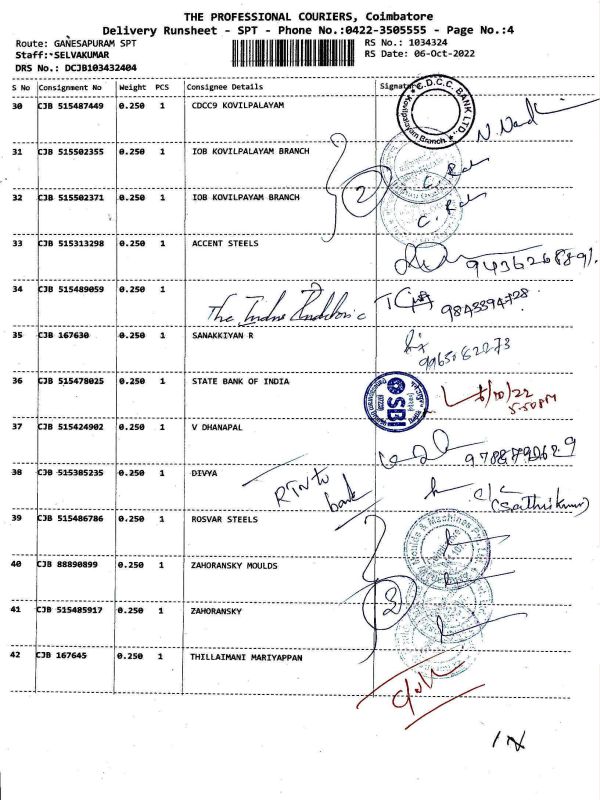 THE PROFESSIONAL COURIERS, Coimbatore
Delivery Runsheet - SPT - Phone No.:0422-3505555 - Page No.:4
Route: GANESAPURAM SPT
RS No.: 1034324
Staff:*SELVAKUMAR
RS Date: 06-Oct-2022
DRS No.: DCJB103432404
S No Consignment No Weight PCS Consignee Details Signature
30 CJB 515487449 0.250 1 CDCC9 KOVILPALAYAM
C.D.C.C. BANK LTD.
Kovilpalayam Branch
31 CJB 515502355 0.250 1 IOB KOVILPALAYAM BRANCH
2
32 CJB 515502371 0.250 1 IOB KOVILPAYAM BRANCH
33 CJB 515313298 0.250 1 ACCENT STEELS
34 CJB 515489059 0.250 1
9843394728
35 CJB 167630 0.250 1 SANAKKIYAN R
9965082273
36 CJB 515478025 0.250 1 STATE BANK OF INDIA
SBI
6/10/22
5.50PM
37 CJB 515424902 0.250 1 V DHANAPAL
38 CJB 515385235 0.250 1 DIVYA
RTN to
bank
c/c
(Sathiskumar)
39 CJB 515486786 0.250 1 ROSVAR STEELS
40 CJB 88890899 0.250 1 ZAHORANSKY MOULDS
3
41 CJB 515485917 0.250 1 ZAHORANSKY
42 CJB 167645 0.250 1 THILLAIMANI MARIYAPPAN